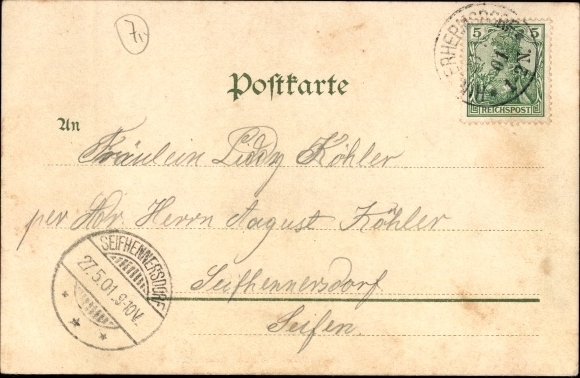 7,-
5 5
REICHSPOST
Postkarte
An
Fräulein Liddy Köhler
per Adr. Herrn August Köhler
Seifhennersdorf
Seifen.
SEIFHENNERSDORF
27.5.01.9-10V.